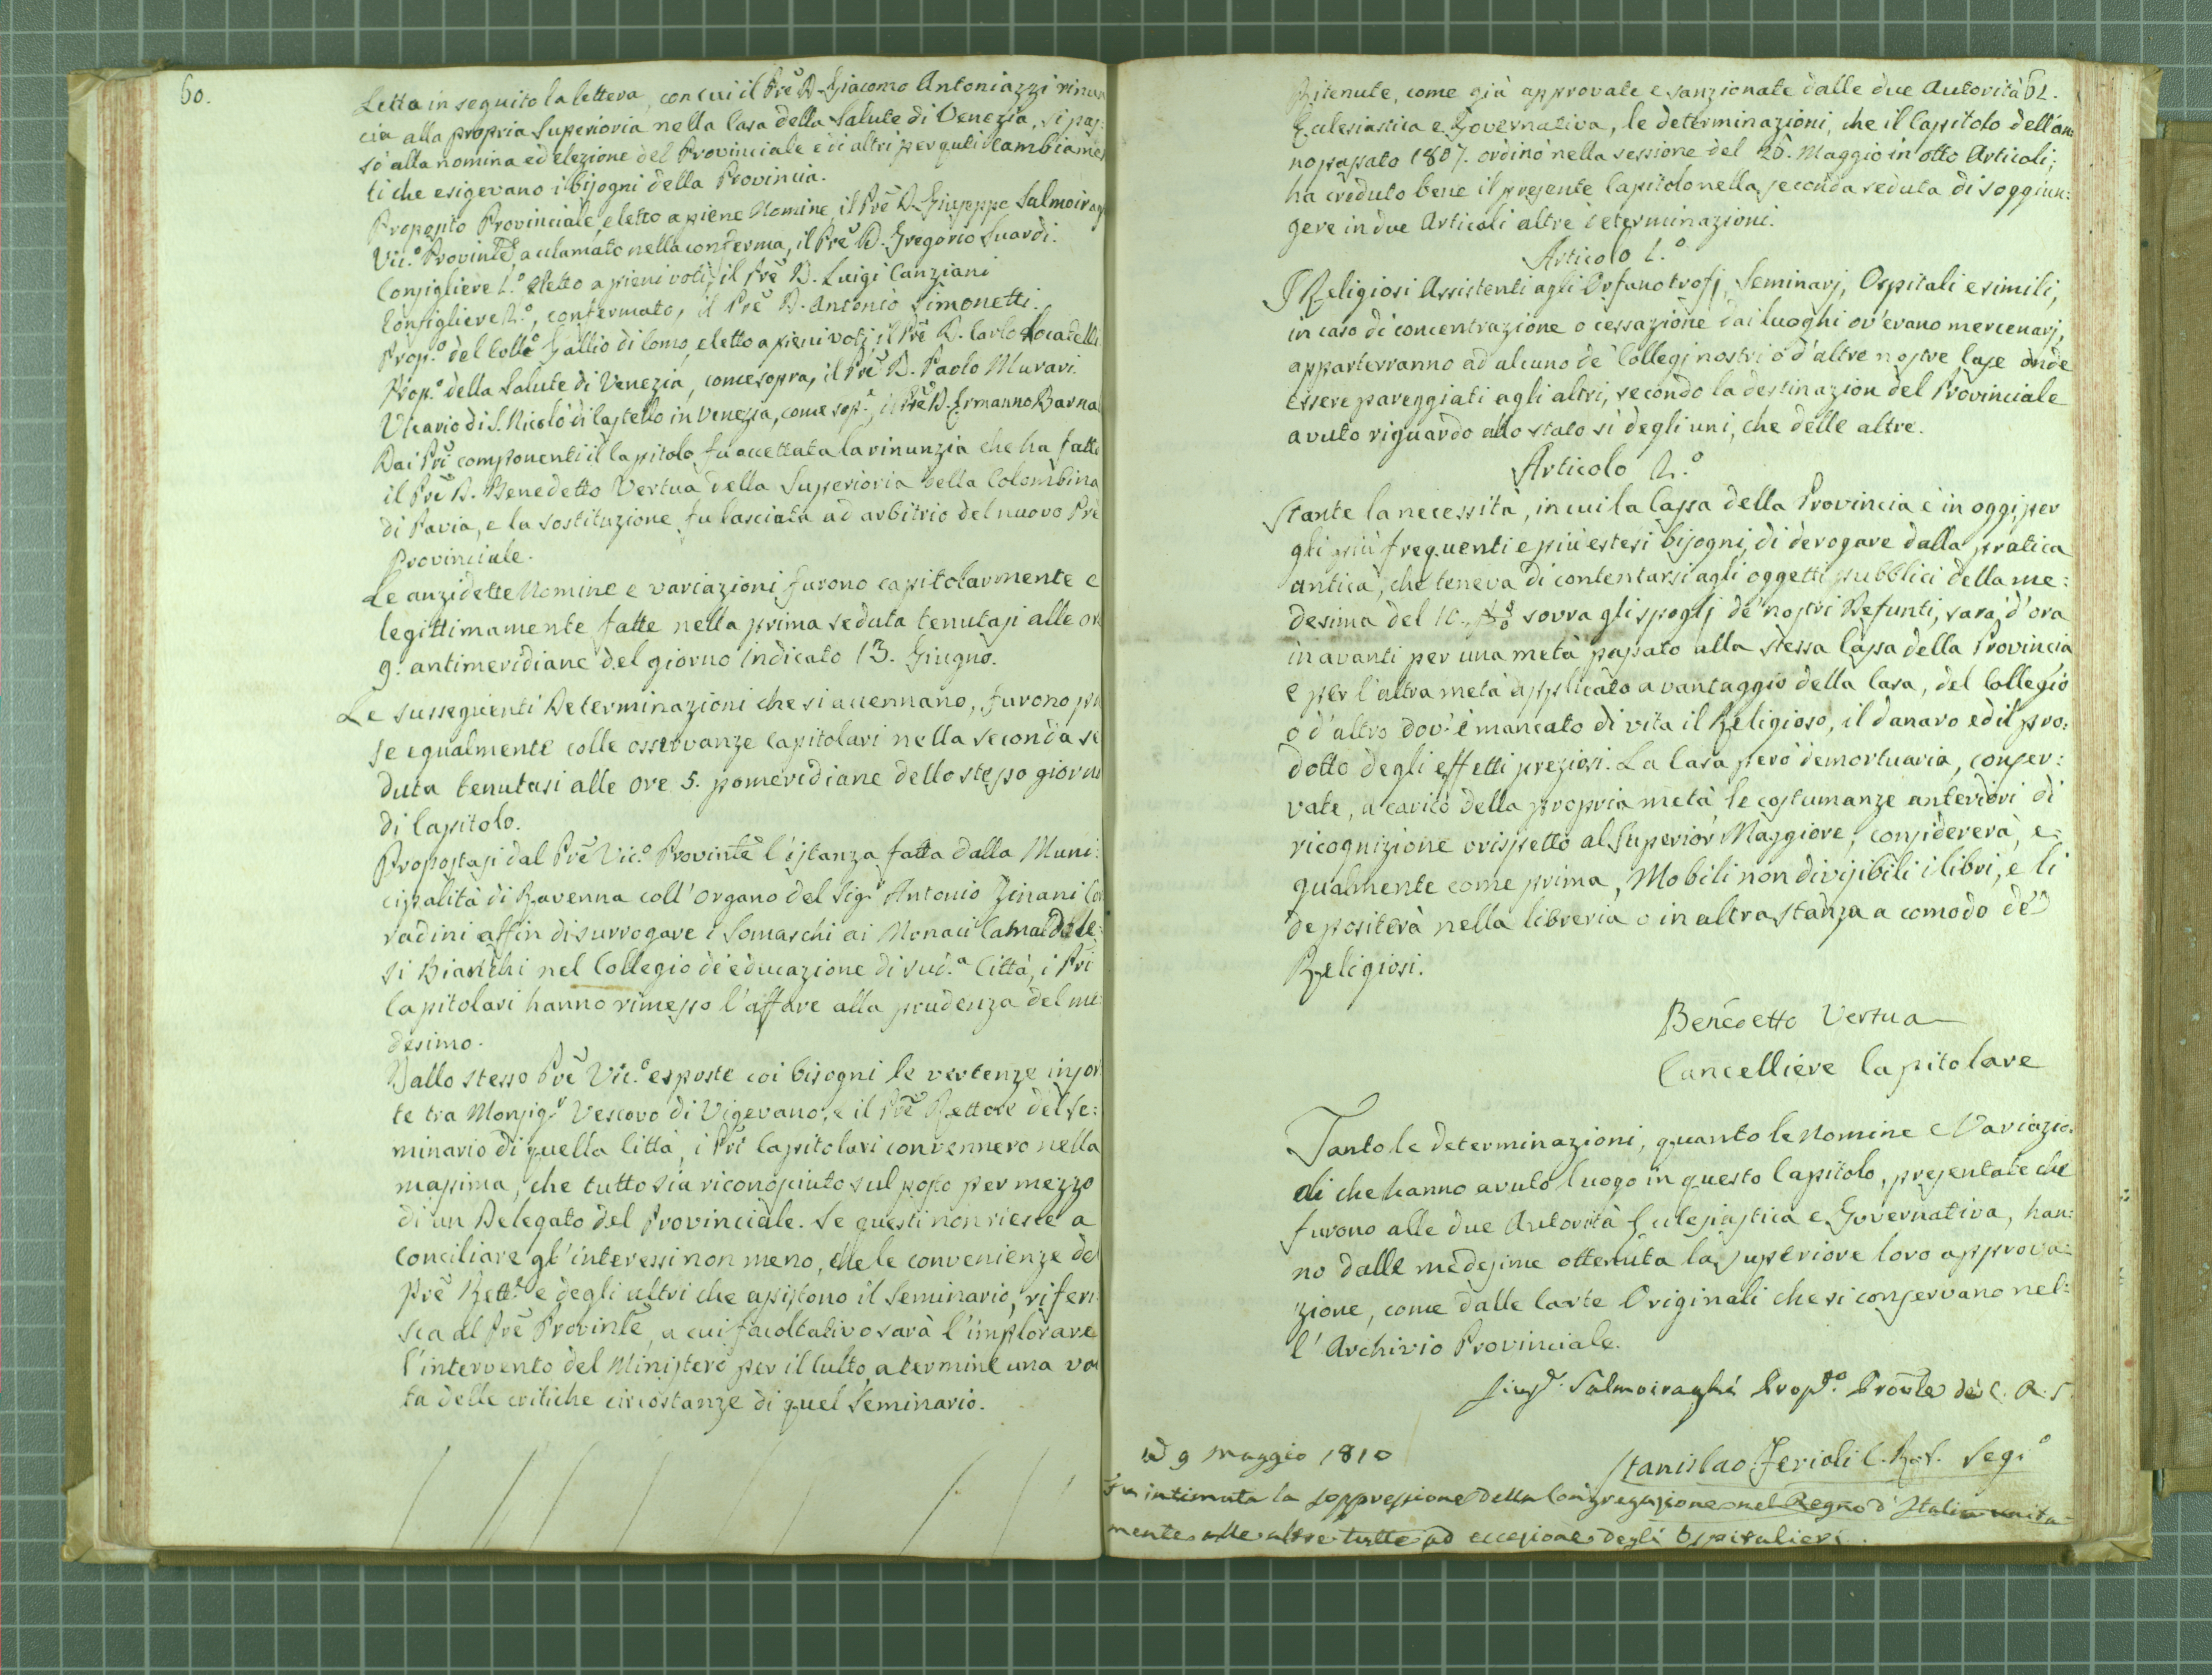 60.
Letta in seguito la lettera, con cui il Prẽ D. Giacomo Antoniazzi rinun
cia alla propria Superioria nella Casa della Salute di Venezia, si pas:
sò alla nomina ed elezione del Provinciale e di altri per quli cambiamen
ti che esigevano i bisogni della Provincia.
Preposito Provinciale, eletto a piene Nomine, il Prẽ D. Giuseppe Salmoirag
Vic.º Provinlẽ, acclamato nella conferma, il Prẽ D. Gregorio Suardi.
Consigliere 1.º eletto a pieni voti, il Prẽ D. Luigi Canziani
Consigliere 2.º, confermato, il Prẽ D. Antonio Simonetti.
Prop.º del Coll.º Gallio di Como, eletto a pieni voti, il Prẽ D. Carlo Locatelli
Prop.º della Salute di Venezia, come sopra, il Prẽ D. Paolo Murari.
Vicario di S. Nicolò di Castello in Venezia, come sop.ª, il Prẽ D. Ermanno Barna
Dai Pri componenti il Capitolo fu accettata la rinunzia che ha fatta
il Prẽ D. Benedetto Vertua della Superioria della Colombina
di Pavia, e la sostituzione fu lasciata ad arbitrio del nuovo Prẽ
Provinciale.
Le anzidette Nomine e variazioni furono capitolarmente e
legittimamente fatte nella prima seduta tenutasi alle or
9. antimeridiane del giorno indicato 13. Giugno.
Le susseguenti Determinazioni che si accennano, furono pre
se egualmente colle osservanze Capitolari nella seconda se
duta tenutasi alle ore 5. pomeridiane dello stesso giorno
di Capitolo.
Propostasi dal Prẽ Vic.º Provinlẽ l'istanza fatta dalla Muni:
cipalità di Ravenna coll'organo del Sig.r Antonio Zinani Cor
radini affin di surrogare i Somaschi ai Monaci Camaldole:
si Bianchi nel Collegio di educazione di sud.ª Città, i Pri
Capitolari hanno rimesso l'affare alla prudenza del me:
desimo.
Dallo stesso Prẽ Vic.º esposte coi bisogni le vertenze insor
te tra Monsig.r Vescovo di Vigevano, e il Prẽ Rettore del Se:
minario di quella Città, i Pri Capitolari convennero nella
massima, che tutto sia riconosciuto sul posto per mezzo
di un Delegato del Provinciale. Se questi non riesce a
conciliare gl'interessi non meno, che le convenienze del
Prẽ Rett.e e degli altri che assistono il Seminario, riferi
sca al Prẽ Provinlẽ, a cui facoltativo sarà l'implorare
l'intervento del Ministero per il Culto, a termine una vol
ta delle critiche circostanze di quel Seminario.
61.
Ritenute, come già approvate e sanzionate dalle due Autorità
Eclesiastica e Governativa, le determinazioni, che il Capitolo dell'an:
no passato 1807. ordinò nella sessione del 26. Maggio in otto Articoli;
ha creduto bene il presente Capitolo nella seconda seduta di soggiun:
gere in due Articoli altre determinazioni.
Articolo 1.º
I Religiosi Assistenti agli Orfanotrofj, Seminarj, Ospitali e simili,
in caso di concentrazione o cessazione dai luoghi ov'erano mercenarj,
apparterranno ad alcuno de' Collegj nostri o d'altre nostre Case onde
essere pareggiati agli altri, secondo la destinazion del Provinciale
avuto riguardo allo stato sì degli uni, che delle altre.
Articolo 2.º
Stante la necessità, in cui la Cassa della Provincia è in oggi, per
gli più frequenti e più estesi bisogni, di derogare dalla pratica
antica, che teneva di contentarsi agli oggetti pubblici della me:
desima del 10. p% sovra gli spoglj de' nostri Defunti, sarà d'ora
in avanti per una metà passato alla stessa Cassa della Provincia
e per l'altra metà applicato a vantaggio della Casa, del Collegio
o d'altro dov'è mancato di vita il Religioso, il danaro ed il pro:
dotto degli effetti preziosi. La Casa però demortuaria, conser:
vate, a carico della propria metà le costumanze anteriori di
ricognizione rispetto al Superior Maggiore, considererà, e:
qualmente come prima, Mobili non divisibili i libri, e li
depositerà nella libreria o in altra stanza a comodo de'
Religiosi.
Benedetto Vertua
Cancelliere Capitolare
Tanto le determinazioni, quanto le Nomine e Variazio
ni che hanno avuto luogo in questo Capitolo, presentate che
furono alle due Autorità Eclesiastica e Governativa, han:
no dalle medesime ottenuta la superiore loro approva:
zione, come dalle Carte Originali che si conservano nel:
l'Archivio Provinciale.
Salmoiraghi Prop.º Provle de' C. R. S.
Stanislao Ferioli C. R. S. Seg.º
Ad 9 Maggio 1810
Fu intimata la soppressione della Congregazione nel Regno d'Italia unita
mente alle altre tutte ad eccezione degli Ospitalieri.